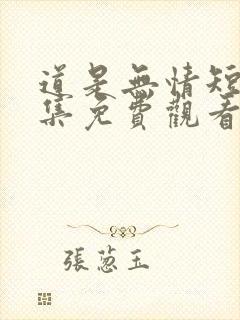 道是無情短
集免費觀看
張蔥玉